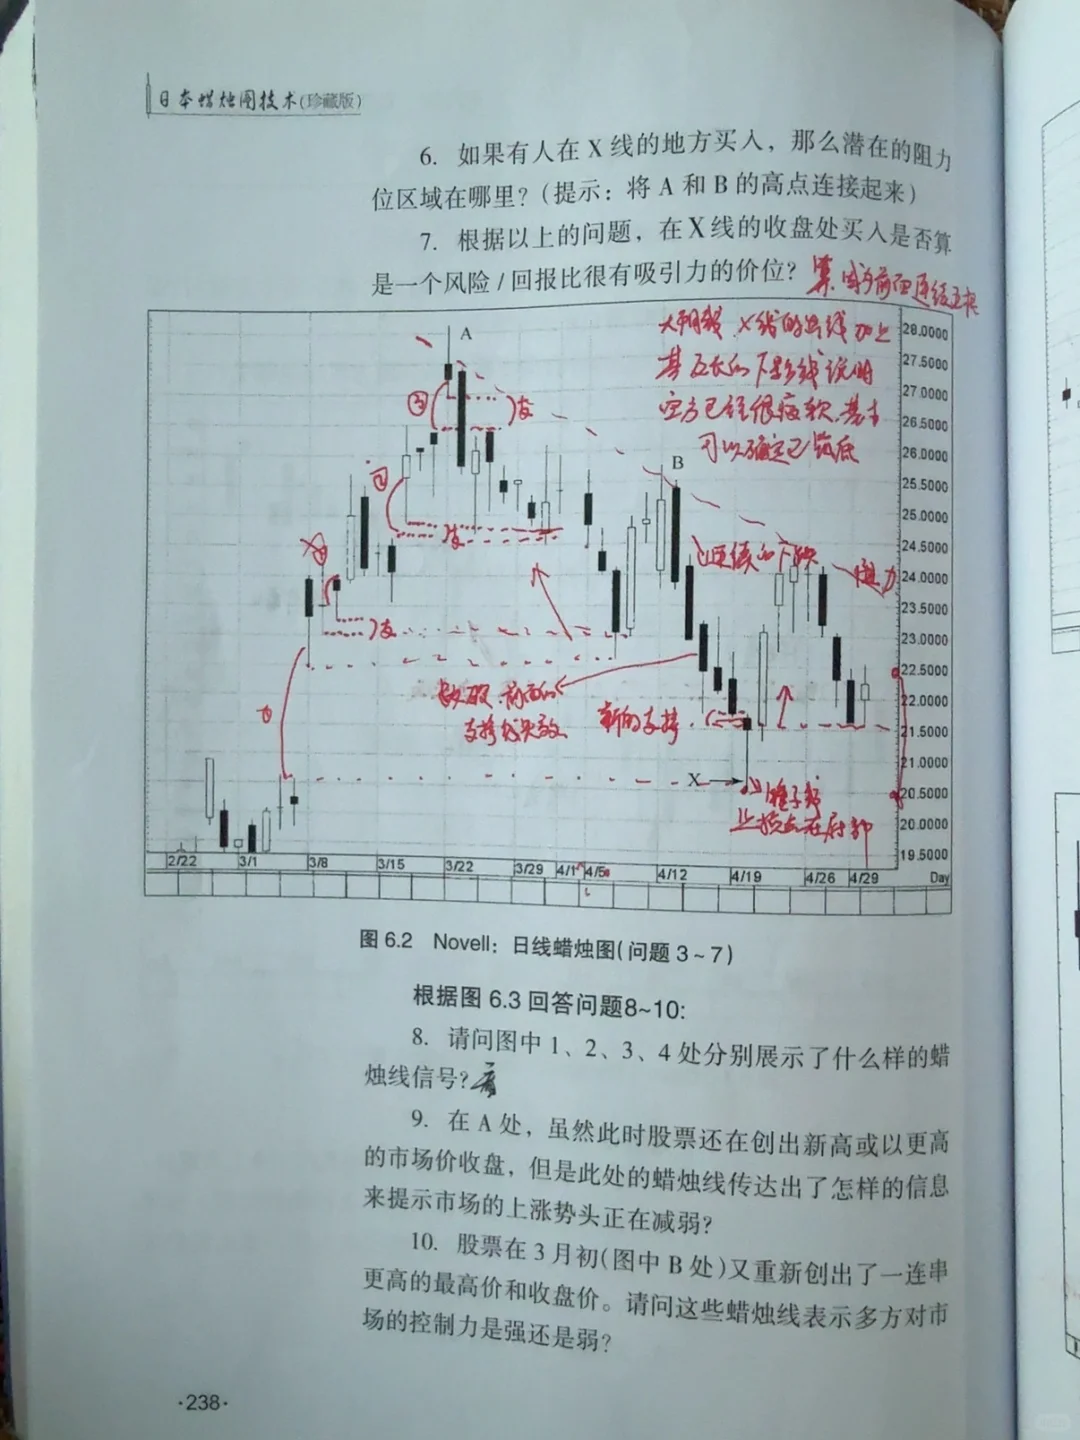 日本蜡烛图技术(珍藏版)
6. 如果有人在 X 线的地方买入，那么潜在的阻力
位区域在哪里？(提示：将 A 和 B 的高点连接起来)
7. 根据以上的问题，在X线的收盘处买入是否算
是一个风险/回报比很有吸引力的价位？
算,因为前面连续五根
大阴线,X线的出线加上
其长的下影线说明
空方已经很疲软,基本
可以确定已筑底
A
28.0000
27.5000
27.0000
26.5000
26.0000
25.5000
25.0000
24.5000
24.0000
23.5000
23.0000
22.5000
22.0000
21.5000
21.0000
20.5000
20.0000
19.5000
③
支
B
②
支
连续的下跌
阻力
支
跌破,前面的
支撑线失效
新的支撑
①
X
锤子线
止损点在启部
2/22
3/1
3/8
3/15
3/22
3/29
4/1
4/5
4/12
4/19
4/26
4/29
Day
图 6.2 Novell：日线蜡烛图(问题 3~7)
根据图 6.3 回答问题8~10:
8. 请问图中 1、2、3、4 处分别展示了什么样的蜡
烛线信号？
9. 在 A 处，虽然此时股票还在创出新高或以更高
的市场价收盘，但是此处的蜡烛线传达出了怎样的信息
来提示市场的上涨势头正在减弱？
10. 股票在 3 月初(图中 B 处)又重新创出了一连串
更高的最高价和收盘价。请问这些蜡烛线表示多方对市
场的控制力是强还是弱？
·238·